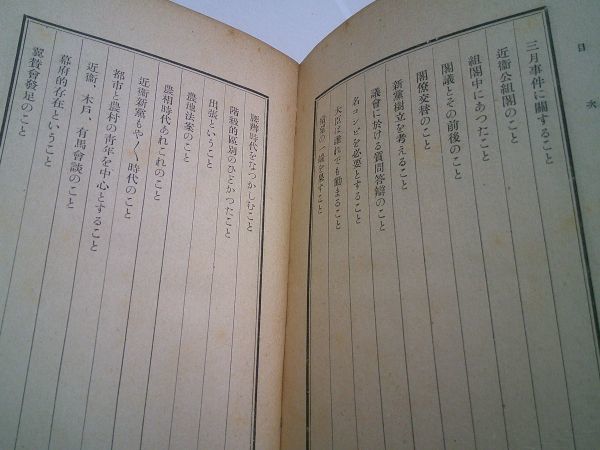 目次
三月事件に關すること
近衞公組閣のこと
組閣中にあつたこと
閣議とその前後のこと
閣僚交替のこと
新黨樹立を考えること
議會に於ける質問答辯のこと
名コンビを必要とすること
大臣は誰れでも勤まること
の一議を要すこと
時代をなつかしむこと
階級的區別のひどかつたこと
出張ということ
農地法案のこと
農相時代あれこれのこと
近衞新黨もや〱時代のこと
都市と農村の靑年を中心とすること
近衞、木戸、有馬會談のこと
幕府的存在ということ
翼賛會發足のこと